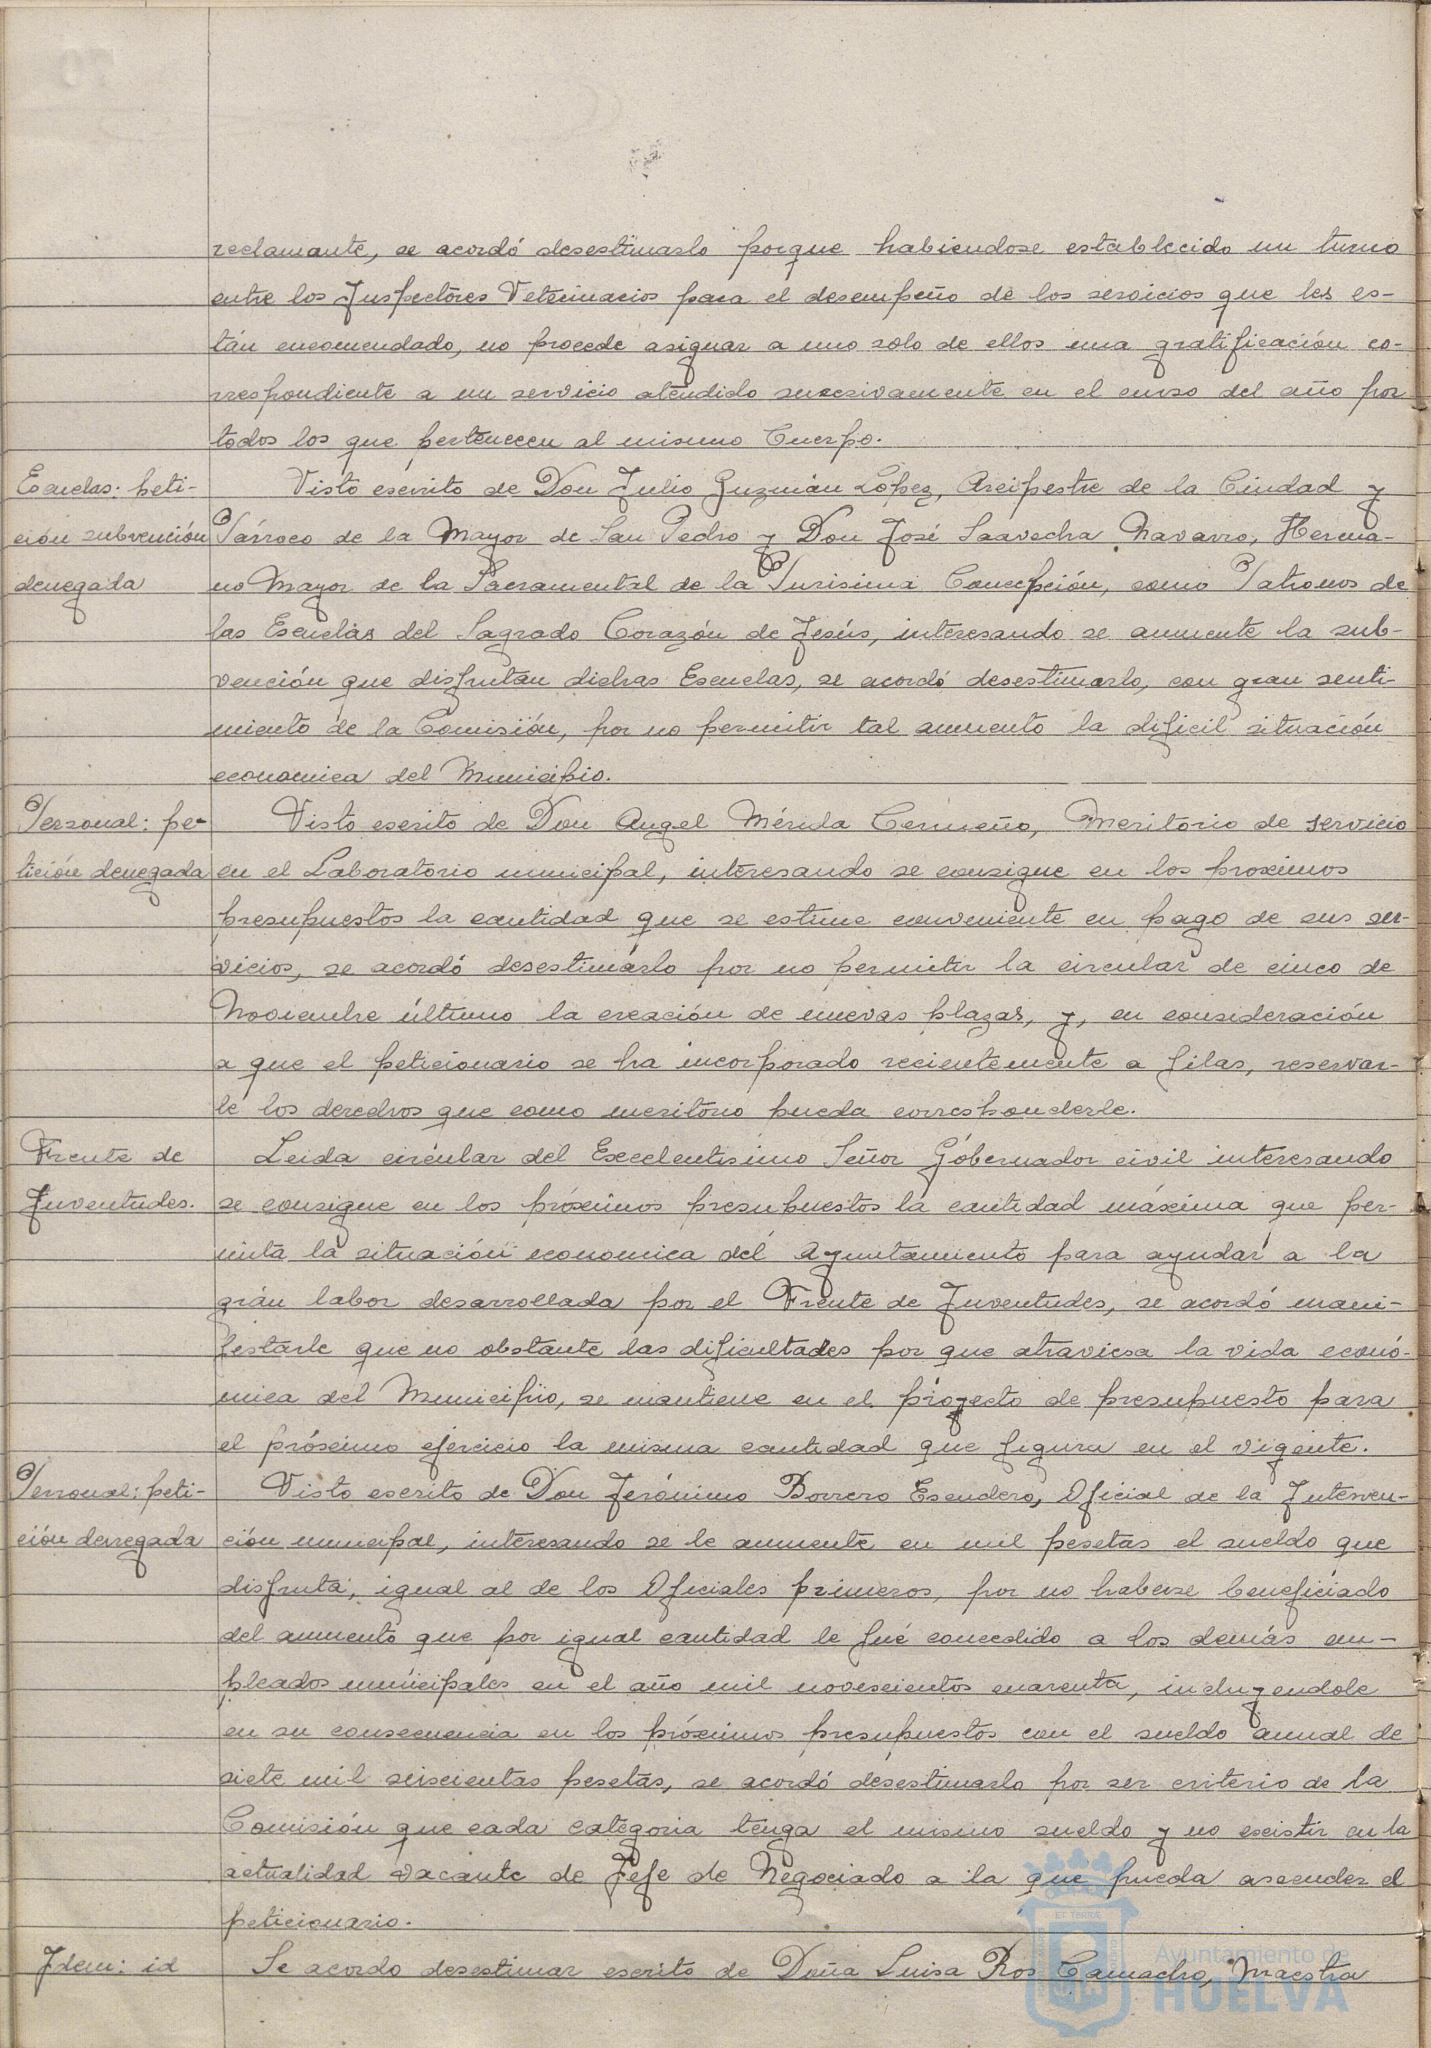 reclamante, se acordó desestimarlo porque habiendose establecido un turno
entre los Inspectores Veterinarios para el desempeño de los servicios que les es-
tán encomendado, no procede asignar a uno solo de ellos una gratificación co-
rrespondiente a un servicio atendido sucesivamente en el curso del año por
todos los que pertenecen al mismo Cuerpo.
Escuelas: peti-
ción subvención
denegada
Visto escrito de Don Julio Guzmán López, Arcipestre de la Ciudad y
Párroco de la Mayor de San Pedro y Don José Saavedra Navarro, Herma-
no Mayor de la Sacramental de la Purisima Concepción, como Patronos de
las Escuelas del Sagrado Corazón de Jesús, interesando se aumente la sub-
vención que disfrutan dichas Escuelas, se acordó desestimarlo, con gran senti-
miento de la Comisión, por no permitir tal aumento la dificil situación
economica del Municipio.
Personal: pe-
tición denegada
Visto escrito de Don Angel Mérida Cermeño, Meritorio de servicio
en el Laboratorio municipal, interesando se consigne en los proximos
presupuestos la cantidad que se estime conveniente en pago de sus ser-
vicios, se acordó desestimarlo por no permitir la circular de cinco de
Noviembre último la creación de nuevas plazas, y, en consideración
a que el peticionario se ha incorporado recientemente a filas, reservar-
le los derechos que como meritorio pueda corresponderle.
Frente de
Juventudes.
Leida circular del Excelentisimo Señor Gobernador civil interesando
se consigne en los próximos presupuestos la cantidad máxima que per-
mita la situación economica del Ayuntamiento para ayudar a la
grán labor desarrollada por el Frente de Juventudes, se acordó mani-
festarle que no obstante las dificultades por que atraviesa la vida econó-
mica del Municipio, se mantiene en el proyecto de presupuesto para
el próximo ejercicio la misma cantidad que figura en el vigente.
Personal: peti-
ción denegada
Visto escrito de Don Jerónimo Borrero Escudero, Oficial de la Interven-
ción municipal, interesando se le aumente en mil pesetas el sueldo que
disfruta, igual al de los Oficiales primeros, por no haberse beneficiado
del aumento que por igual cantidad le fué concedido a los demás em-
pleados municipales en el año mil novescientos cuarenta, incluyendole
en su consecuencia en los próximos presupuestos con el sueldo anual de
siete mil seiscientas pesetas, se acordó desestimarlo por ser criterio de la
Comisión que cada categoria tenga el mismo sueldo y no existir en la
actualidad vacante de Jefe de Negociado a la que pueda ascender el
peticionario.
Idem: id
Se acordo desestimar escrito de Doña Luisa Ros Camacho, Maestra
Ayuntamiento de
HUELVA